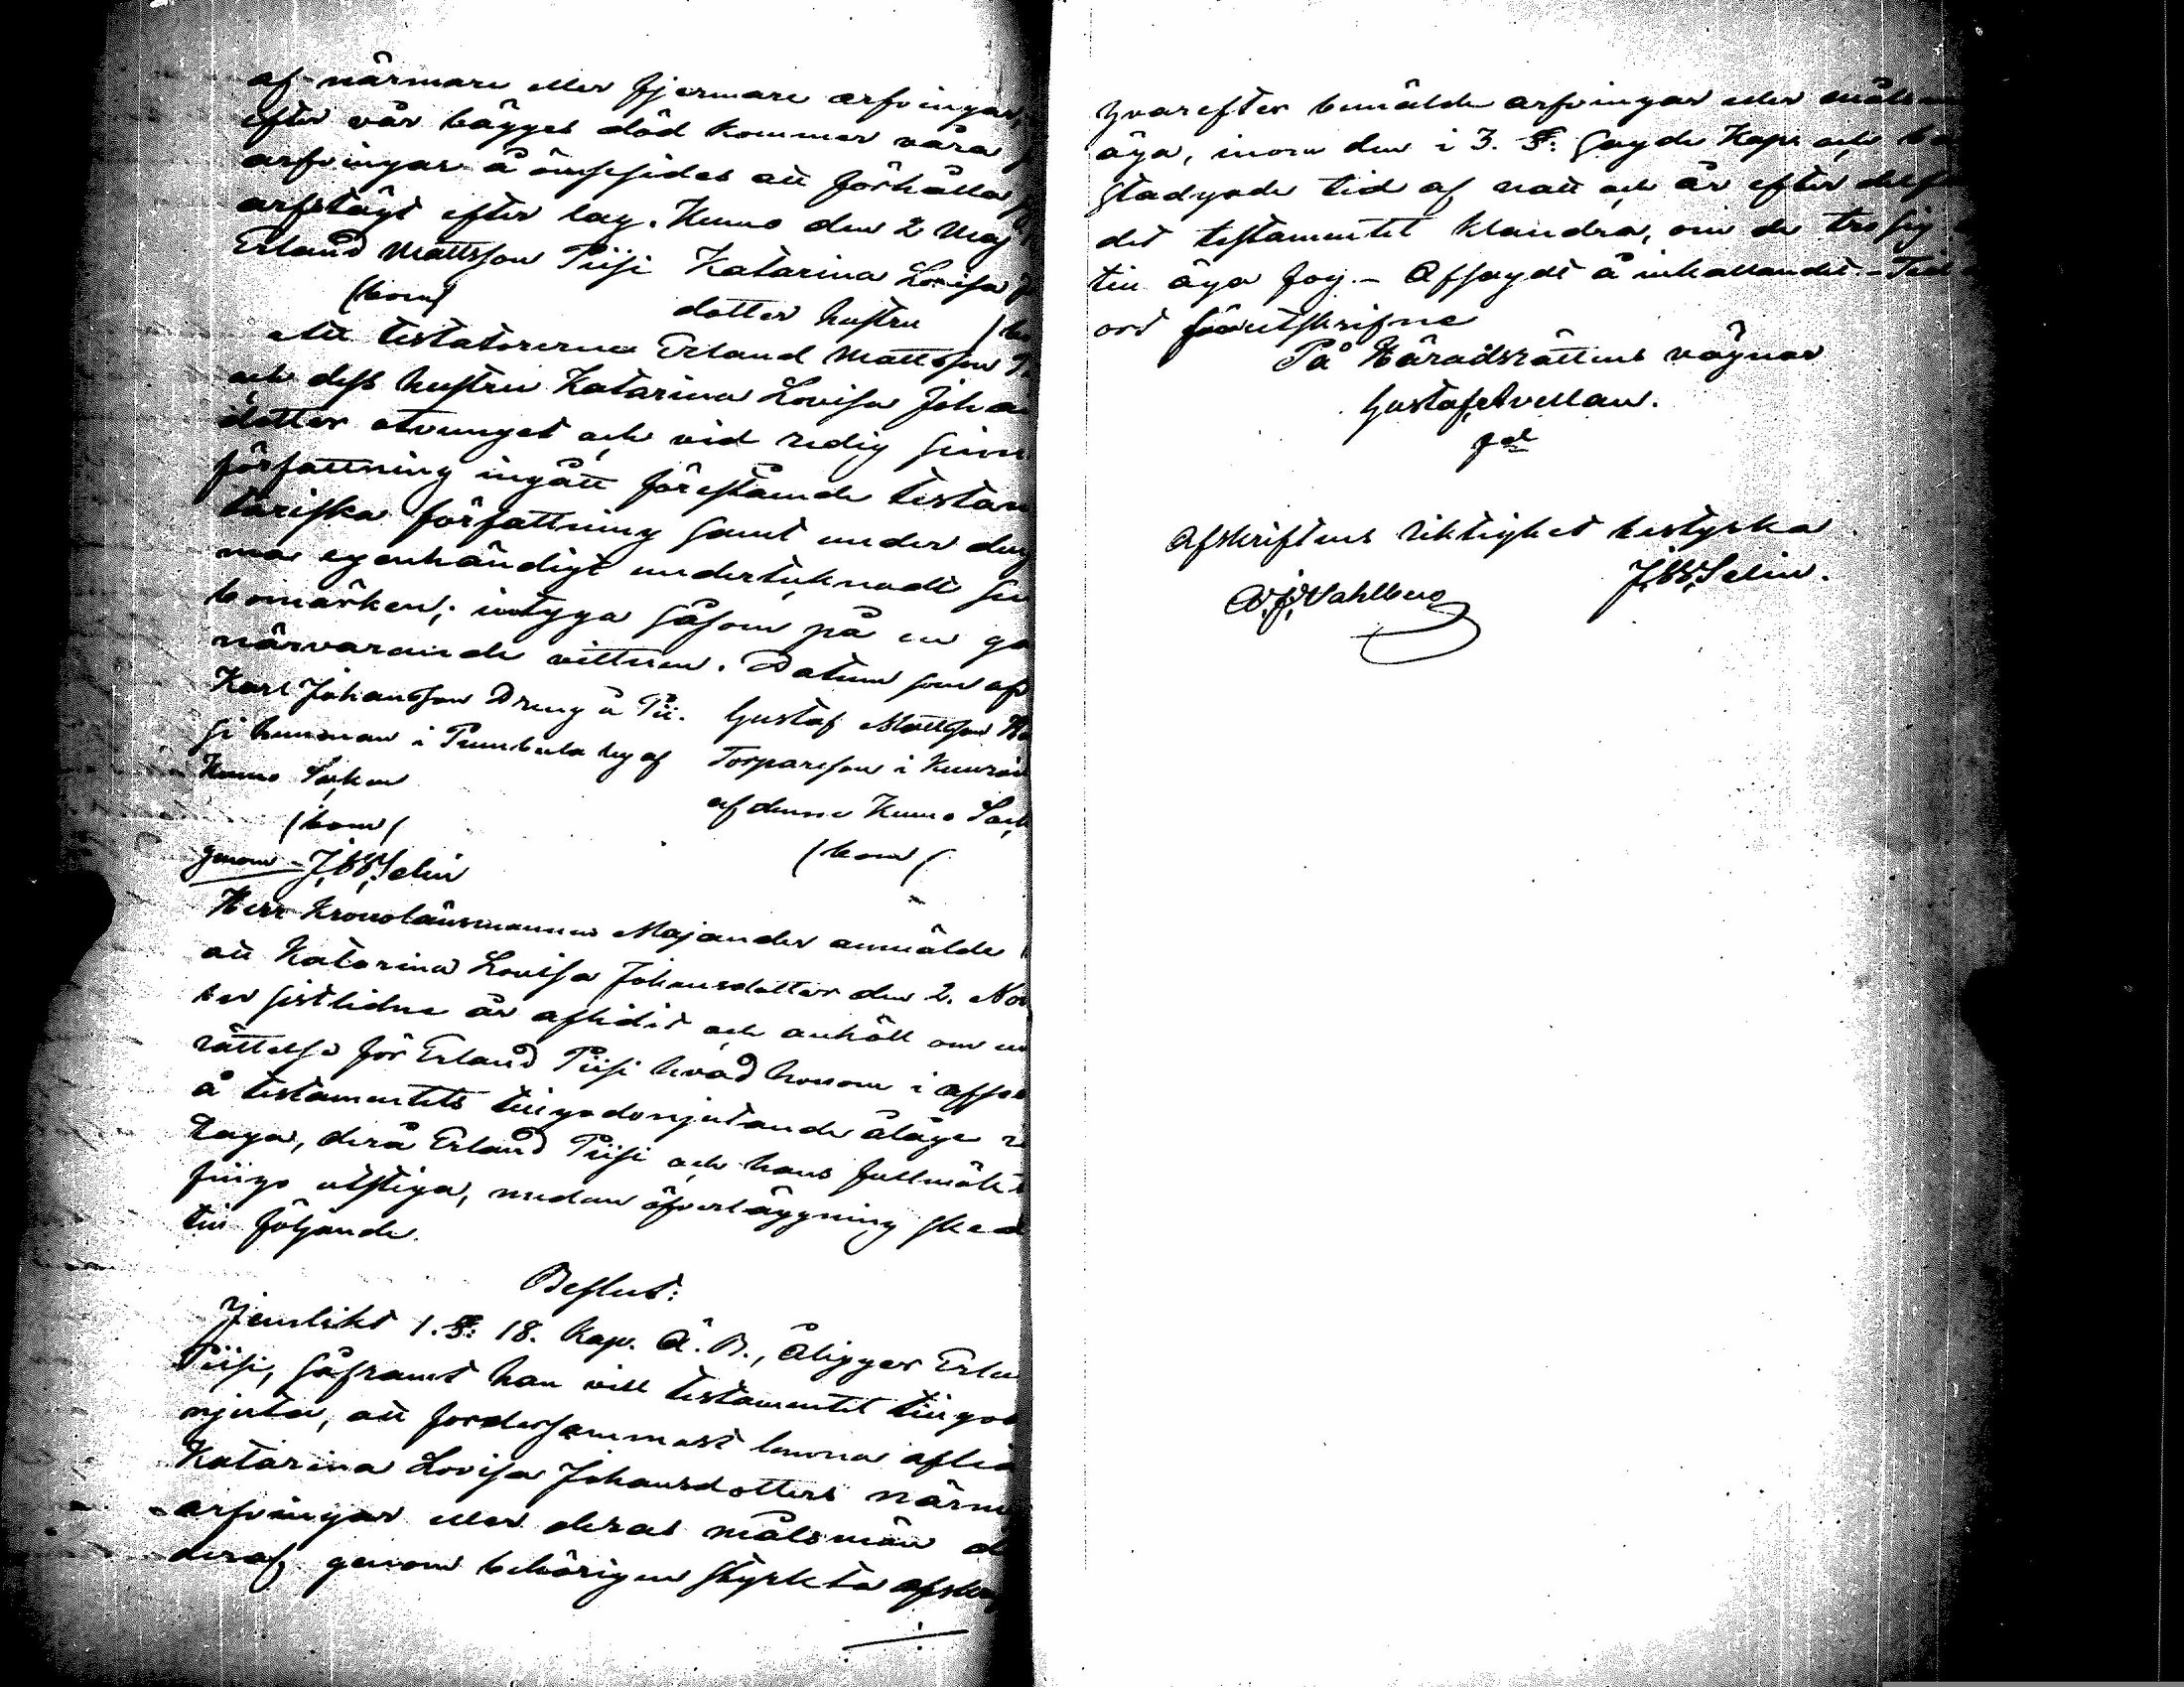 af närmare eller fjermare arfvingar,
efter vår bägges död kommer våra
arfvingar å ömsesides att förhålla
arfstägt efter lag. Kumo den 2 Maj
Erland Mattsson Piisi Katarina Lovisa
(bom) dotter hustru
Att testatorerne Erland Mattsson
och dess hustru Katarina Lovisa Joha
dotter otvunget och vid redig sinn
författning ingått förestående testam
tariska författning samt under den
ma egenhändigt undertecknadt sin
bomärken; intyga såsom på en ga
närvarande vittnen. Datum som of
Karl Johansson Dreng å Pii- Gustaf Mattsson
si hemman i Punkula by af Torpareson i
Kumo Socken
af denne Kumo Sock
(bom) (bom)
genom J. W. Selin
Herr Kronolänsmannen Majander anmälde
att Katarina Lovisa Johansdotter den 2. Nov
ber sistlidne år aflidit och anhöll om un
rättelse för Erland Piisi hvad honom i afse
å testamentets tillgodonjutande ålåge
taga, derå Erland Piisi och hans fullmäkt
fingo utstiga, medan öfverläggning sked
till följande.
Beslut:
Jemlikt 1. §: 18. Kap. Ä. B., åligger Erla
Piisi, såframt han vill testamentet tillgod
njuta, att fordersammast lemna aflid
Katarina Lovisa Johansdotters närm
arfvingar eller deras målsmän d
deraf genom behörigen styrkta afskr
hvarefter bemälde arfvingar eller målsm
äga, inom den i 3. §: sagde Kap. och ba
stadgade tid af natt och år efter delf
det testamentet klandra, om de tro sig
till äga fog. - Afsagdt å inkallandet. - Tid
ort förutskrifne
På Häradsrättens vägnar
Gustaf Avellan.
Afskriftens riktighet bestyrka
J. W. Selin.
Wahlberg